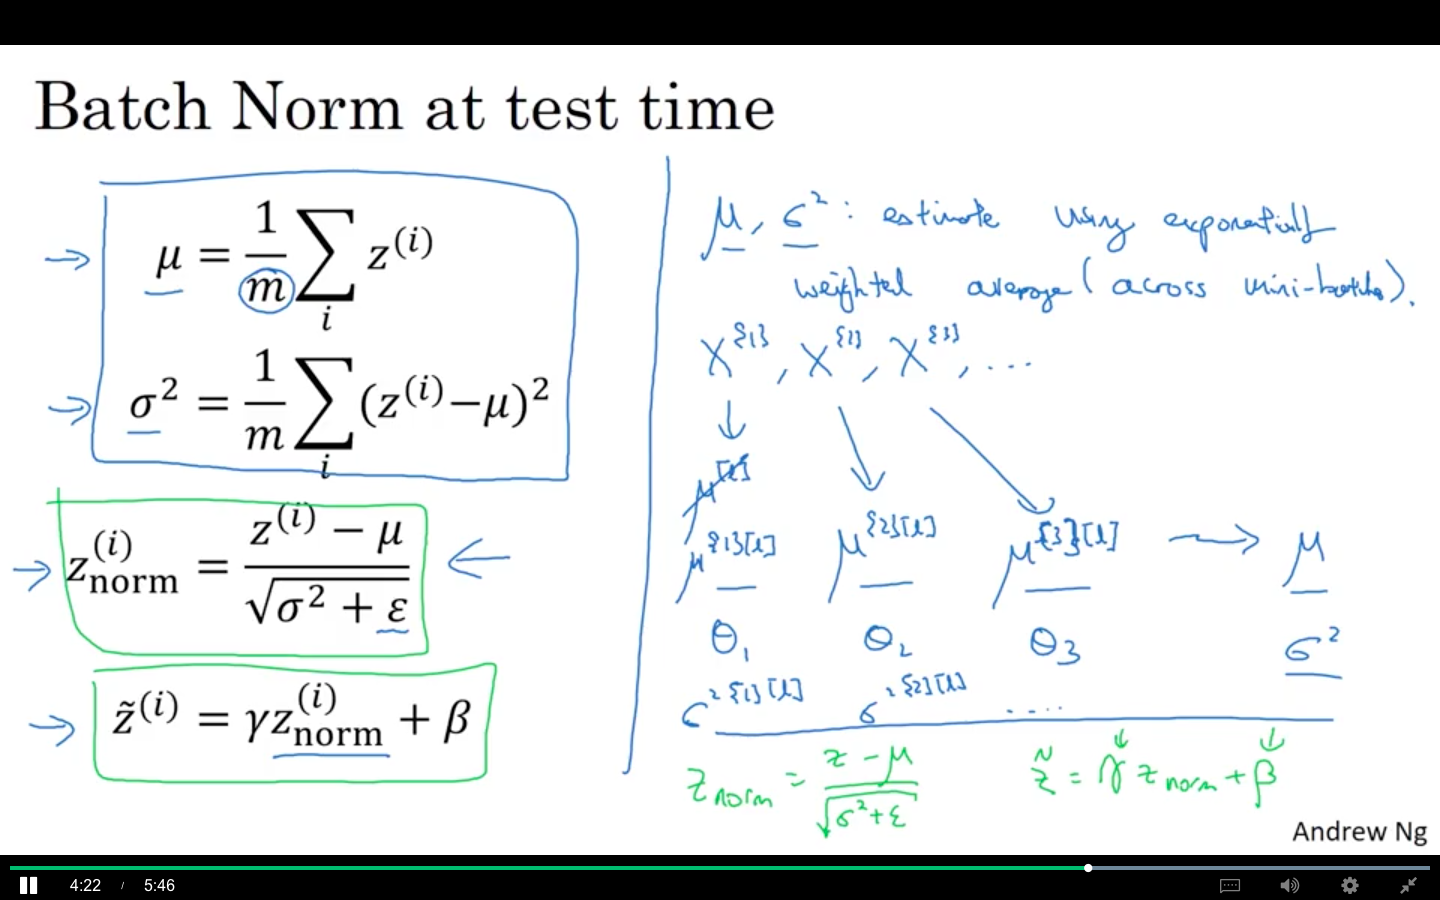 Batch Norm at test time
μ = 1/m ∑_i z^(i)
σ² = 1/m ∑_i (z^(i) − μ)²
z_norm^(i) = (z^(i) − μ) / √(σ² + ε)
z̃^(i) = γ z_norm^(i) + β
μ, σ² : estimate using exponentially
weighted average (across mini-batches).
X^{1}, X^{2}, X^{3}, ...
μ^[l]
μ^{1}[l] μ^{2}[l] μ^{3}[l] → μ
θ₁ θ₂ θ₃ σ²
σ²^{1}[l] σ²^{2}[l] ....
z_norm = (z − μ) / √(σ² + ε) z̃ = γ z_norm + β
Andrew Ng
4:22 / 5:46